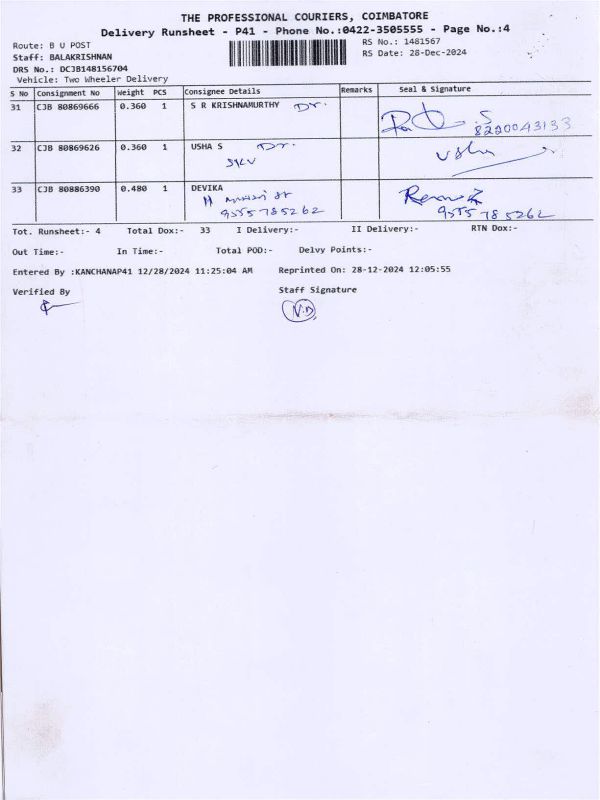 THE PROFESSIONAL COURIERS, COIMBATORE
Delivery Runsheet - P41 - Phone No.:0422-3505555 - Page No.:4
Route: B U POST
RS No.: 1481567
Staff: BALAKRISHNAN
RS Date: 28-Dec-2024
DRS No.: DCJB148156704
Vehicle: Two Wheeler Delivery
S No Consignment No Weight PCS Consignee Details Remarks Seal & Signature
31 CJB 80869666 0.360 1 S R KRISHNAMURTHY Dr.
8220043133
32 CJB 80869626 0.360 1 USHA S Dr. Usha
33 CJB 80886390 0.480 1 DEVIKA
9555785262 9555785262
Tot. Runsheet:- 4 Total Dox:- 33 I Delivery:- II Delivery:- RTN Dox:-
Out Time:- In Time:- Total POD:- Delvy Points:-
Entered By :KANCHANAP41 12/28/2024 11:25:04 AM Reprinted On: 28-12-2024 12:05:55
Verified By Staff Signature